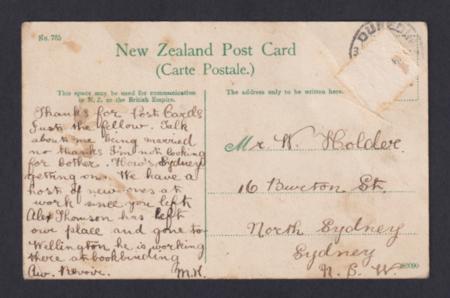 No. 765
DUNEDIN
New Zealand Post Card
(Carte Postale.)
This space may be used for communication
in N.Z. or the British Empire.
The address only to be written here.
Thanks for Post Cards
Just the fellow. Talk
about me being married
no thanks I'm not looking
for bother. How's Sydney
getting on. We have a
host of new ones at
work since you left
Alex Thomson has left
our place and gone to
Wellington he is working
there at bookbinding
Au. Revoir. M.H.
Mr. W. Holder.
16 Burton St.
North Sydney
Sydney
N. S. W.